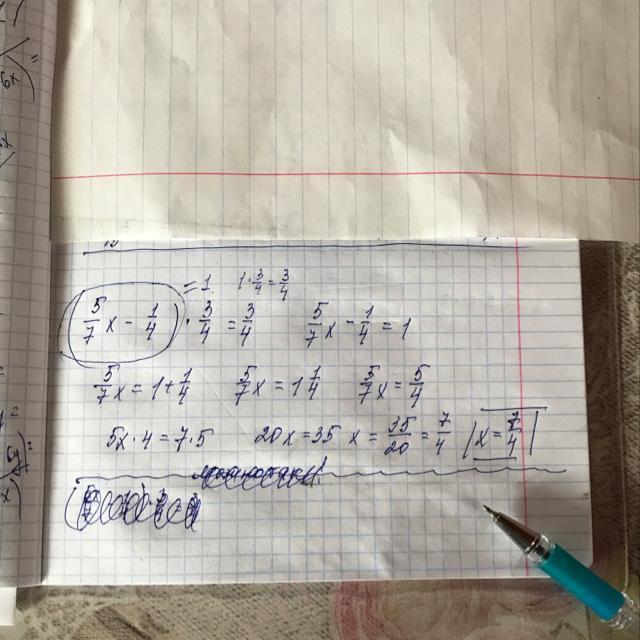 = 1 1·3/4=3/4
(5/7 x - 1/4) · 3/4 = 3/4 5/7 x - 1/4 = 1
5/7 x = 1 + 1/4 5/7 x = 1 1/4 5/7 x = 5/4
5x·4 = 7·5 20x = 35 x = 35/20 = 7/4 |x = 7/4|